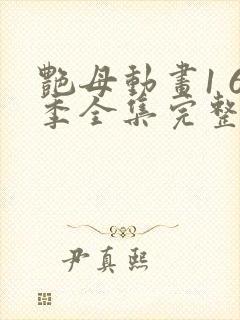 艷母動畫1 6
季全集完整
尹真熙